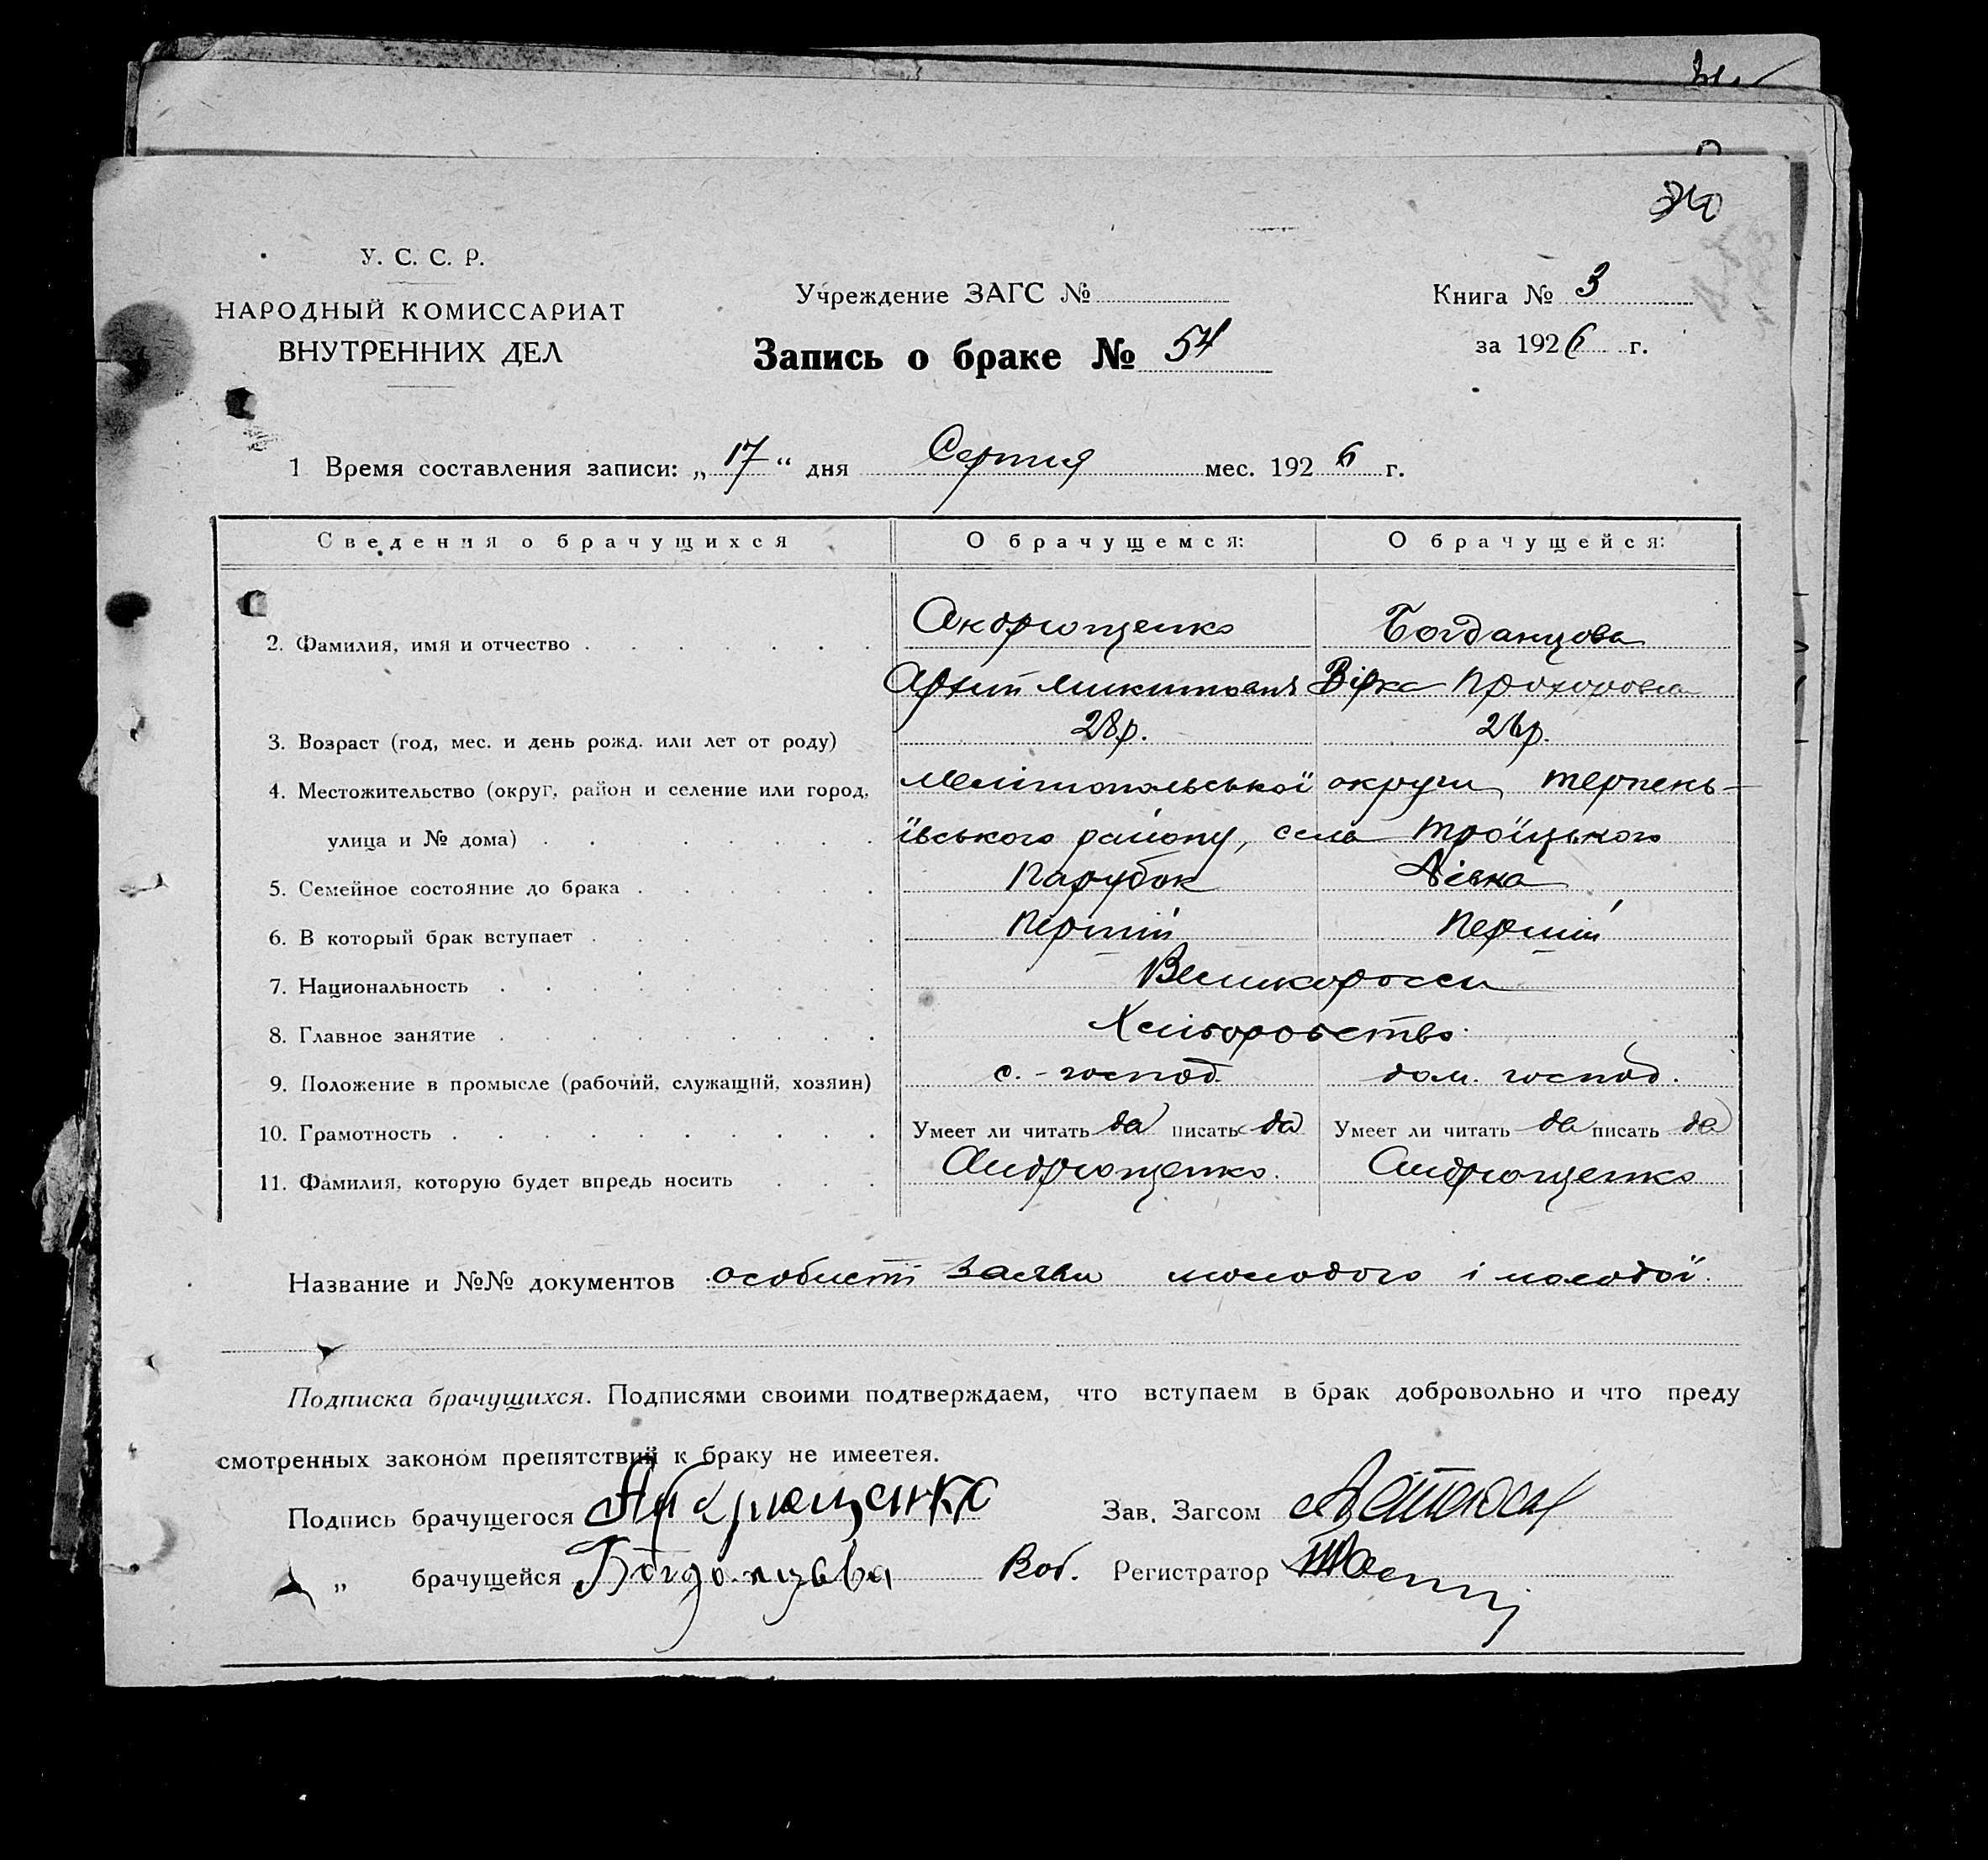 У. С. С. Р.
НАРОДНЫЙ КОМИССАРИАТ
ВНУТРЕННИХ ДЕЛ
Учреждение ЗАГС №
Запись о браке № 54
Книга № 3
за 1926 г.
1 Время составления записи: „17“ дня Серпня мес. 1926 г.
Сведения о брачущихся О брачущемся: О брачущейся:
2. Фамилия, имя и отчество Андрющенко Богданцова
Архип Микитович Вірка Прохоровна
3. Возраст (год, мес. и день рожд. или лет от роду) 28 р. 26 р.
4. Местожительство (округ, район и селение или город, Мелітопольської округи, Терпень-
улица и № дома) ївського району, села Троїцького
5. Семейное состояние до брака Парубок Дівка
6. В который брак вступает Перший Перший
7. Национальность Великоросси
8. Главное занятие Хліборобство
9. Положение в промысле (рабочий, служащий, хозяин) с.-господ. дом. господ.
10. Грамотность Умеет ли читать да писать да Умеет ли читать да писать да
11. Фамилия, которую будет впредь носить Андрющенко. Андрющенко
Название и №№ документов особисті заяви молодого і молодої.
Подписка брачущихся. Подписями своими подтверждаем, что вступаем в брак добровольно и что преду
смотренных законом препятствий к браку не имеетея.
Подпись брачущегося Андрющенко Зав. Загсом
„ брачущейся Богданцова Регистратор